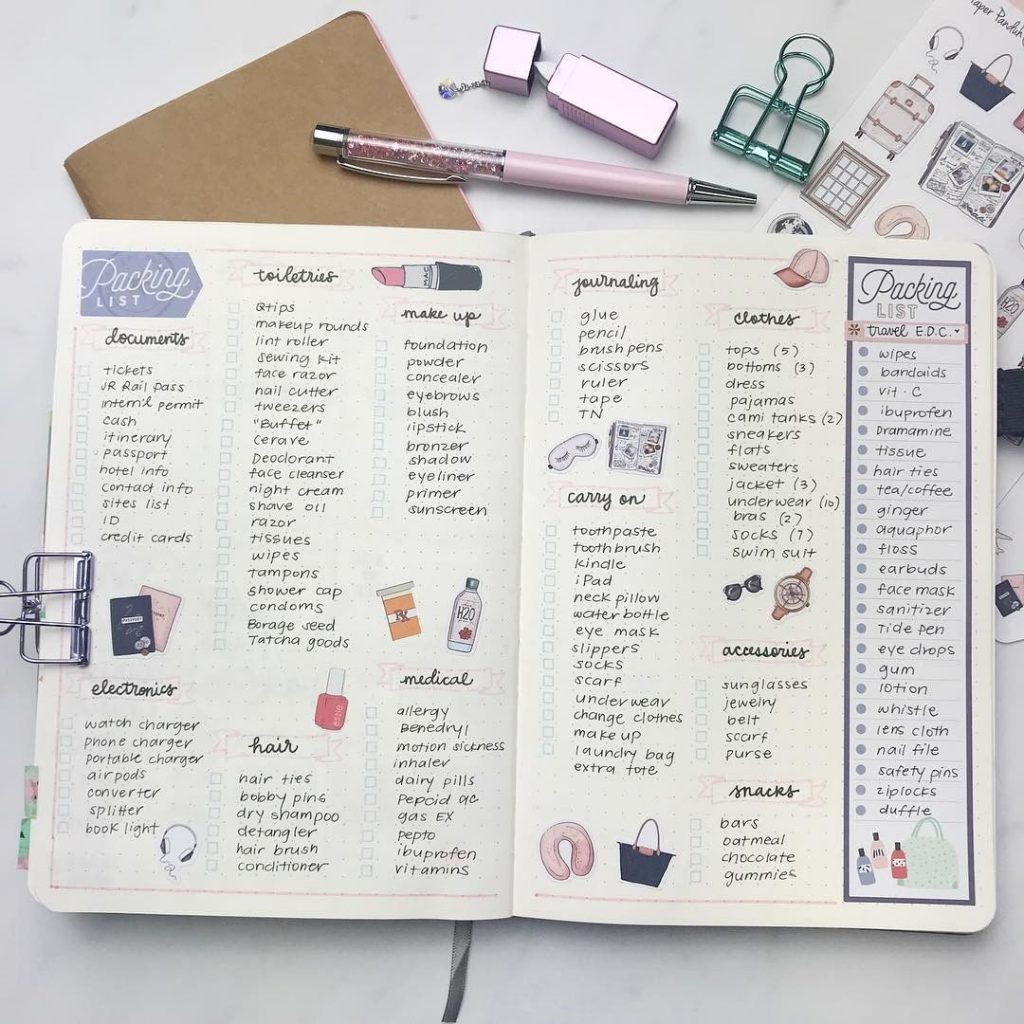 Packing
LIST
documents
tickets
JR Rail pass
intern'l permit
cash
itinerary
passport
hotel info
contact info
sites list
ID
credit cards
PASSPORT
electronics
watch charger
phone charger
portable charger
airpods
converter
splitter
book light
toiletries
Qtips
makeup rounds
lint roller
sewing kit
face razor
nail cutter
tweezers
"Buffet"
cerave
Deodorant
face cleanser
night cream
shave oil
razor
tissues
wipes
tampons
shower cap
condoms
Borage seed
Tatcha goods
essie
hair
hair ties
bobby pins
dry shampoo
detangler
hair brush
conditioner
MAC
make up
foundation
powder
concealer
eyebrows
blush
lipstick
bronzer
shadow
eyeliner
primer
sunscreen
Rx
H2O
medical
allergy
Benedryl
motion sickness
inhaler
dairy pills
pepcid ac
gas EX
pepto
ibuprofen
vitamins
journaling
glue
pencil
brush pens
scissors
ruler
tape
TN
carry on
toothpaste
toothbrush
kindle
iPad
neck pillow
water bottle
eye mask
slippers
socks
scarf
underwear
change clothes
make up
laundry bag
extra tote
clothes
tops (5)
bottoms (3)
dress
pajamas
cami tanks (2)
sneakers
flats
sweaters
jacket (3)
underwear (10)
bras (2)
socks (7)
swim suit
accessories
sunglasses
jewelry
belt
scarf
purse
snacks
bars
oatmeal
chocolate
gummies
Packing
LIST
travel E.D.C.
wipes
bandaids
vit. C
ibuprofen
Dramamine
tissue
hair ties
tea/coffee
ginger
aquaphor
floss
earbuds
face mask
sanitizer
Tide pen
eye drops
gum
lotion
whistle
lens cloth
nail file
safety pins
ziplocks
duffle